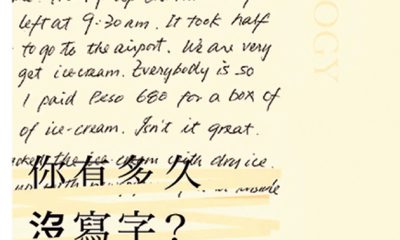 left at 9:30am. It took half
to go to the airport. We are very
get ice-cream. Everybody is so
I paid Peso 680 for a box of
of ice-cream. Isn't it great.
the ice-cream with dry ice.
你有多久
沒寫字？
OGY